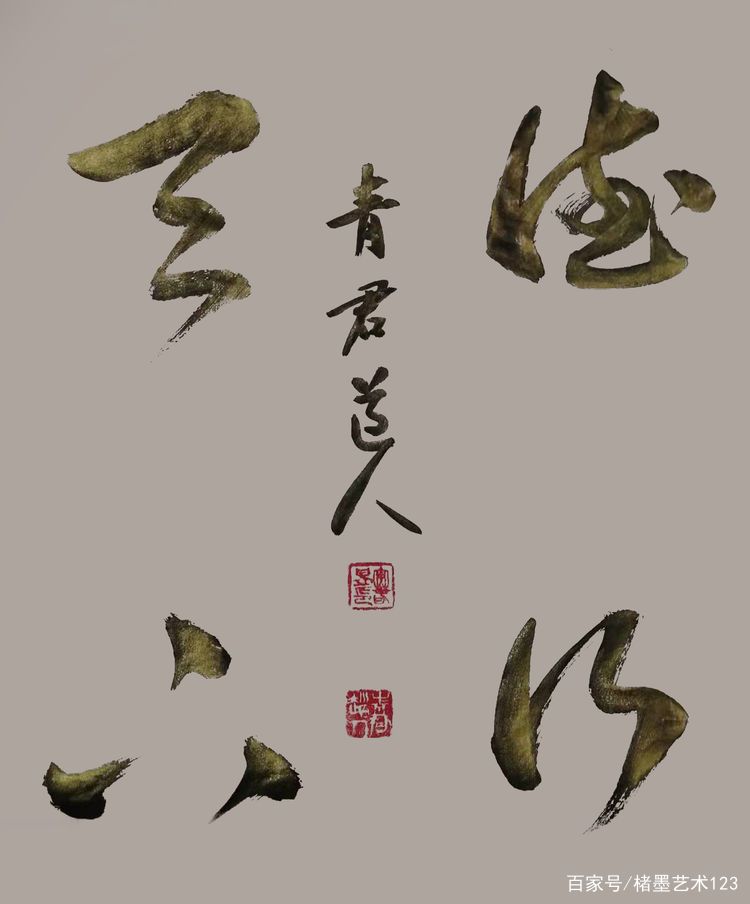 德行
天下
青君道人
百家号/楮墨艺术123